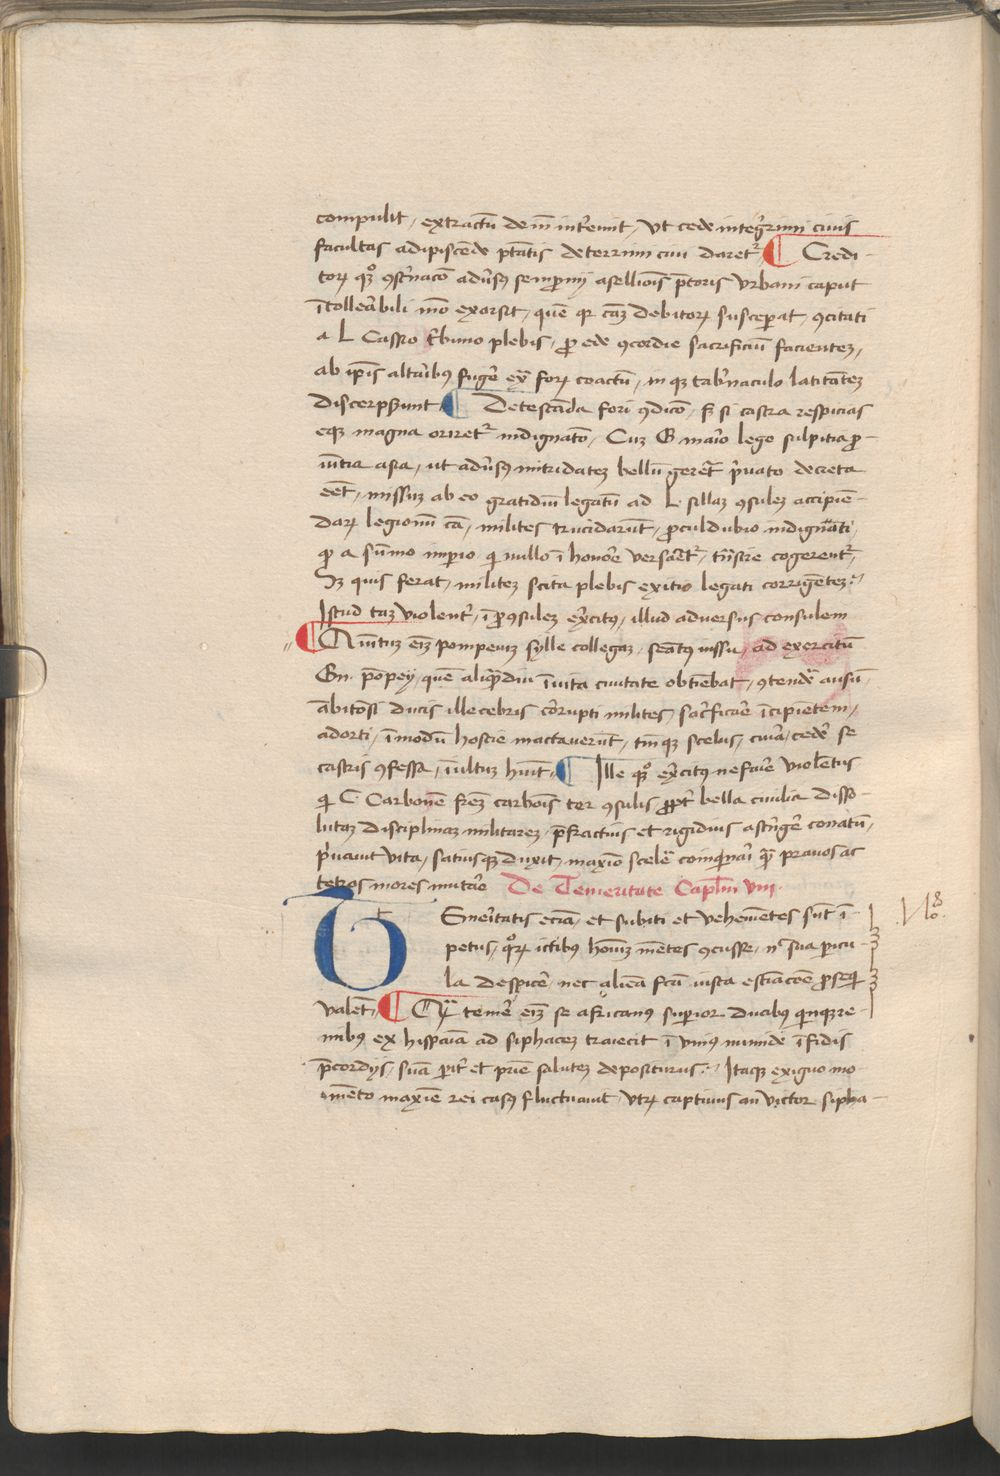 compulit, extractũ deinĩ int̾emit, Vt cede integ̾rimi ciuis
facultas adipiscẽde p̃tãtis deterrimi ciui daret᷑ ¶ Credi-
torꝝ qꝫͦ ꝯst̾nacõ adũsꝰ sempronij asellioĩs p̃toris Vrbani caput
ĩtolleãbili mõ exorsit, quẽ qꝛ cãꝫ debitorꝝ suscep̃at, ꝯcitati
a L Cassio t̾buno plebis, ꝓ ede ꝯcordie sacrificiũ facientẽ,
ab ip̃is altaribꝰ fug̾e ex̾ forꝝ coactũ, in qꝫ tab̾naculo latitãteꝫ
discerpserunt ¶ Detestãda fori ꝯdicõ, sꝫ si castra respicias
eqꝫ magna oriret᷑ indignatõ, Cuꝫ G mario lege sulpitia ꝓ-
uĩtia asia, ut adũsꝰ mitridateꝫ bellũ gereret᷑ p̾uato decreta
eẽt, missuꝫ ab eo gratidiũ legatũ ad L sillaꝫ ꝯsuleꝫ accipiẽ-
darꝝ legionũ cã, milites trucidarũt, ꝓculdubio indignãti,
ꝙ a sũmo imp̃io qͥ nullo ĩ honõre versãet᷑, trãnsire cogerent᷑,
Sꝫ quis ferat, militeꝫ scita plebis exitio legati corrigẽteꝫ
Istud taꝫ violent̾, ĩ ꝓ ꝯsuleꝫ ex̾citꝰ, illud adversus consulem
¶ Quintuꝫ eĩꝫ pompeiuꝫ sylle collegaꝫ, señatꝰ iussu, ad exercitũ
Gn. põpey, quẽ aliqũdiu ĩuita ciuitate obtiñebat, ꝯtend̾e ausũ,
ãbitiosi ducis illecebris c̾orupti milites, sac̾ficãre ĩcipietem,
adorti, ĩ modũ hostie mactauerũt, tm̃qꝫ scelus, curia, ced̾e se
castris ꝯfessa, ĩultuꝫ h̾uit ¶ Ille qꝫͦ ex̾citꝰ nefãrie violẽtus
qͥ C Carbonẽ fr̃eꝫ carbois ter ꝯsulis ꝓpt̾ bella ciuilia disso-
lutaꝫ disciplinaꝫ militareꝫ, p̃fractius et rigidius ast̾ng̾e conatũ,
p̾uauit vita, satiusqꝫ duxit, maxiõ scel̾e coinquinari qꝫ̃ prauos ac
tetros mores mutãre De Temeritate Capl̃m viii
TEmeritatis eciã, et subiti et vehemẽtes sũt ĩ-
petus, qͦrꝝ ictibꝰ hoĩuꝫ mẽtes ꝯcusse, nͨ sua p̃icu-
la despic̾e, nec aliẽa fc̃a iusta estiãcõe ꝓseqͥ
valẽt, ¶ Qꝫ̃ tem̾e eĩꝫ se africanus sup̃ior duabus quinqꝫre-
mibꝰ ex hispania ad siphaceꝫ traiecit ĩ vniꝰ numide ĩfidis
p̃cordijs, suã p̃it̾ et pr̃ie saluteꝫ depositurus, Itaqꝫ exiguo mo
mẽto maxiẽ rei casꝰ fluctuauit vtrꝝ captiuus an victor sipha-
No